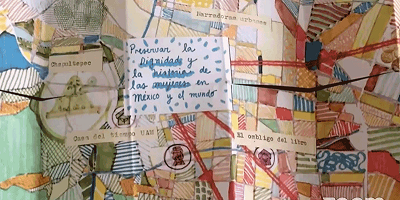 Narradoras urbanas
Preservar la
Dignidad y
la historia de
las mujeres en
México y el mundo
Chapultepec
Casa del tiempo UAM
El ombligo del libro
zoom